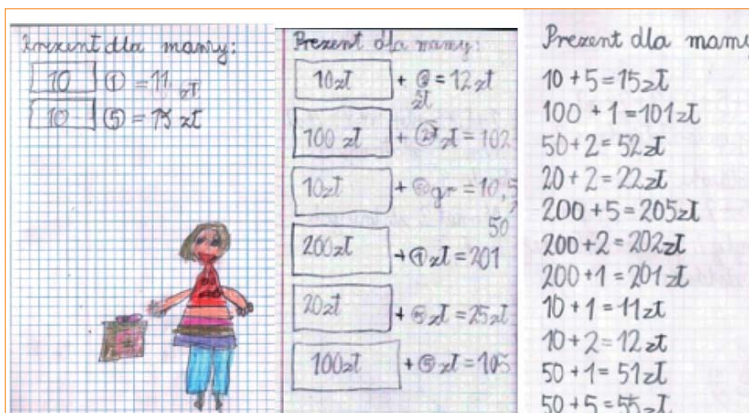 Prezent dla mamy:
10 ① = 11 zł
10 ⑤ = 15 zł
Prezent dla mamy:
10 zł + ② = 12 zł
zł
100 zł + ② zł = 102
10 zł + gr = 10,5
50
200 zł + ① zł = 201
20 zł + ⑤ zł = 25 zł
100 zł + ⑤ zł = 105
Prezent dla mamy
10 + 5 = 15 zł
100 + 1 = 101 zł
50 + 2 = 52 zł
20 + 2 = 22 zł
200 + 5 = 205 zł
200 + 2 = 202 zł
200 + 1 = 201 zł
10 + 1 = 11 zł
10 + 2 = 12 zł
50 + 1 = 51 zł
50 + 5 = 55 zł